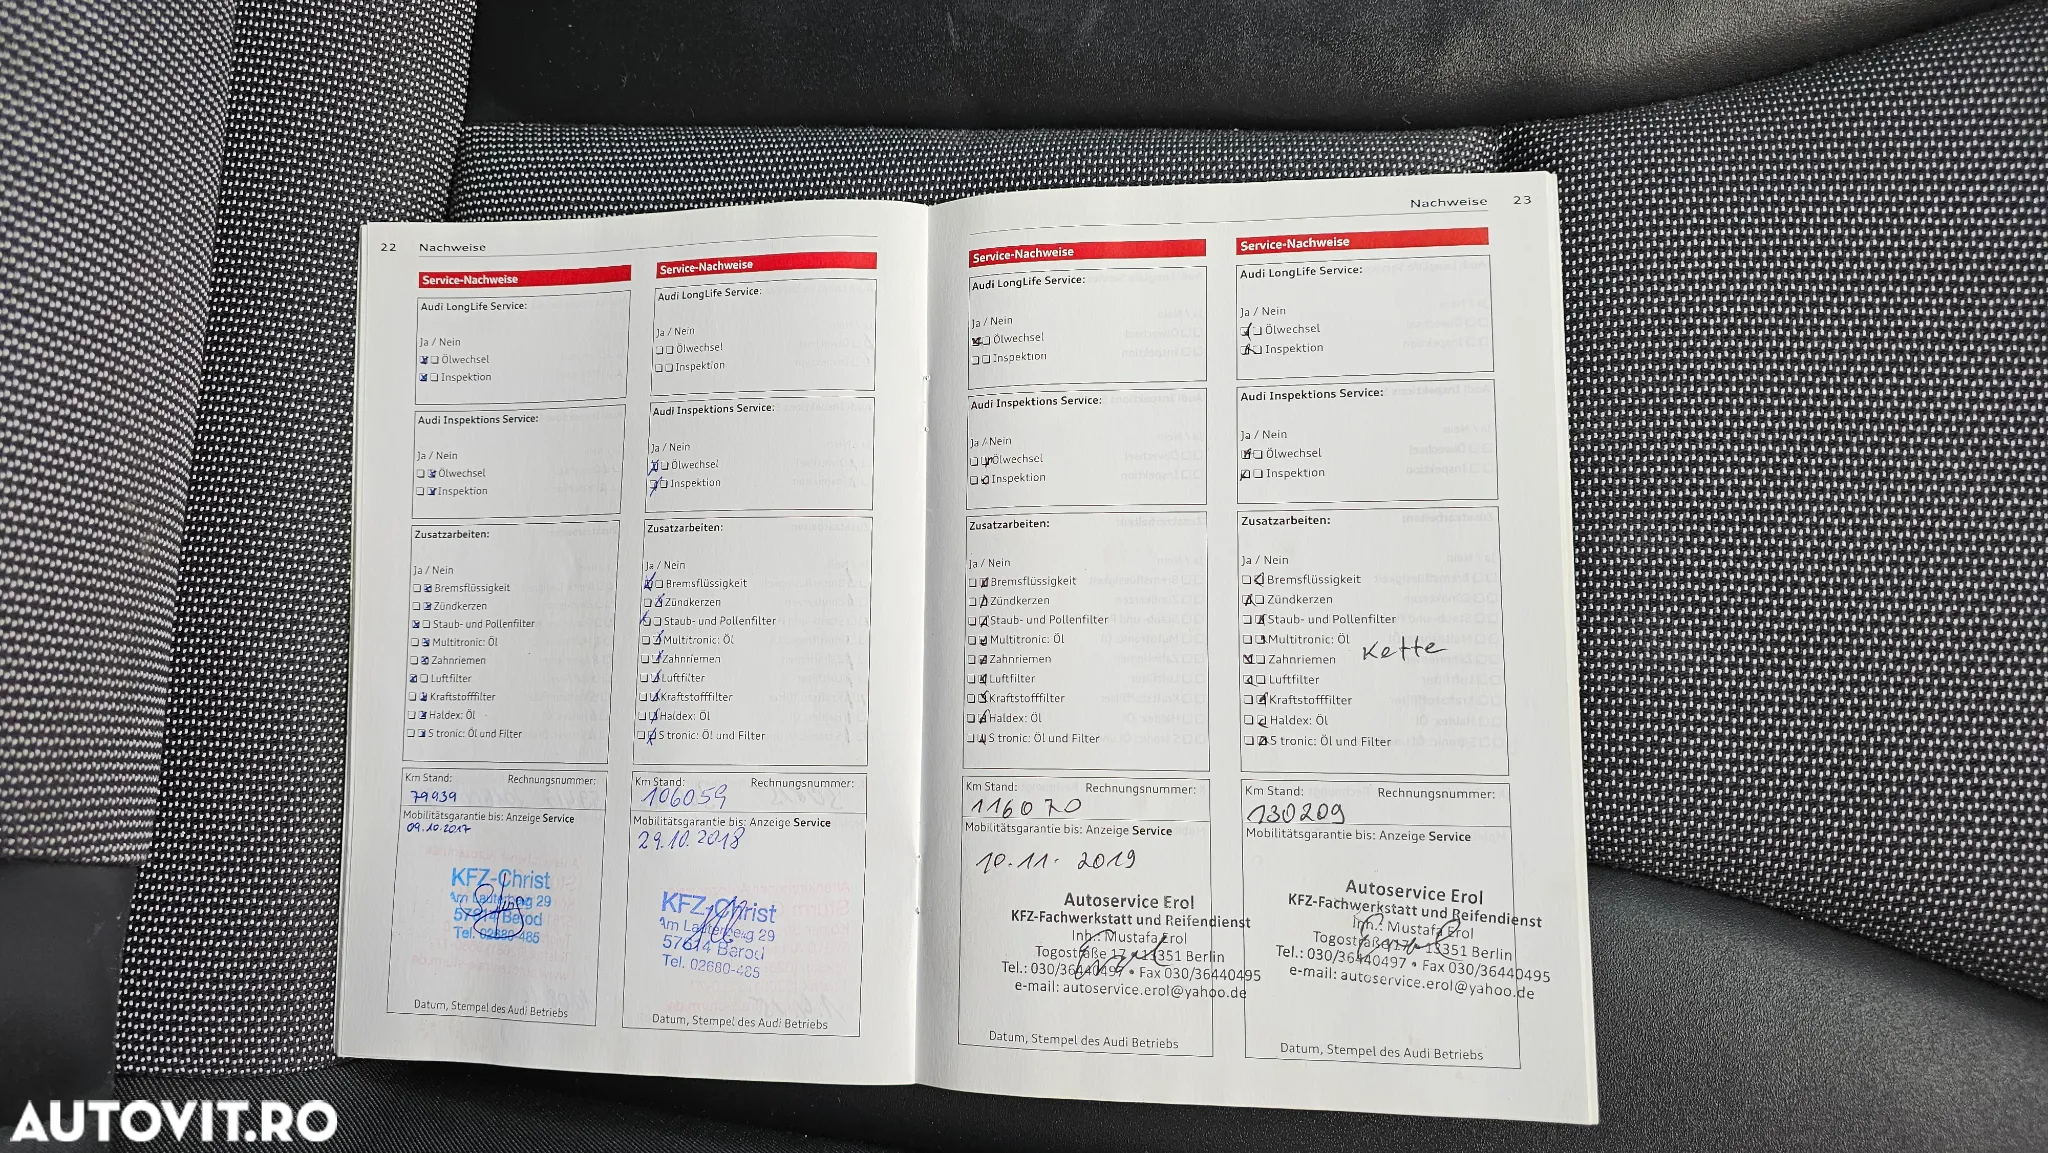 22 Nachweise
Service-Nachweise
Audi LongLife Service:
Ja / Nein
Ölwechsel
Inspektion
Audi Inspektions Service:
Ja / Nein
Ölwechsel
Inspektion
Zusatzarbeiten:
Ja / Nein
Bremsflüssigkeit
Zündkerzen
Staub- und Pollenfilter
Multitronic: Öl
Zahnriemen
Luftfilter
Kraftstofffilter
Haldex: Öl
S tronic: Öl und Filter
Km Stand: Rechnungsnummer:
79939
Mobilitätsgarantie bis: Anzeige Service
09.10.2017
KFZ-Christ
Am Lauterberg 29
57614 Berod
Tel. 02680-485
Datum, Stempel des Audi Betriebs
Service-Nachweise
Audi LongLife Service:
Ja / Nein
Ölwechsel
Inspektion
Audi Inspektions Service:
Ja / Nein
Ölwechsel
Inspektion
Zusatzarbeiten:
Ja / Nein
Bremsflüssigkeit
Zündkerzen
Staub- und Pollenfilter
Multitronic: Öl
Zahnriemen
Luftfilter
Kraftstofffilter
Haldex: Öl
S tronic: Öl und Filter
Km Stand: Rechnungsnummer:
106059
Mobilitätsgarantie bis: Anzeige Service
29.10.2018
KFZ-Christ
Am Lauterberg 29
57614 Berod
Tel. 02680-485
Datum, Stempel des Audi Betriebs
Nachweise 23
Service-Nachweise
Audi LongLife Service:
Ja / Nein
Ölwechsel
Inspektion
Audi Inspektions Service:
Ja / Nein
Ölwechsel
Inspektion
Zusatzarbeiten:
Ja / Nein
Bremsflüssigkeit
Zündkerzen
Staub- und Pollenfilter
Multitronic: Öl
Zahnriemen
Luftfilter
Kraftstofffilter
Haldex: Öl
S tronic: Öl und Filter
Km Stand: Rechnungsnummer:
116070
Mobilitätsgarantie bis: Anzeige Service
10.11.2019
Autoservice Erol
KFZ-Fachwerkstatt und Reifendienst
Inh.: Mustafa Erol
Togostraße 17 • 13351 Berlin
Tel.: 030/36440497 • Fax 030/36440495
e-mail: autoservice.erol@yahoo.de
Datum, Stempel des Audi Betriebs
Service-Nachweise
Audi LongLife Service:
Ja / Nein
Ölwechsel
Inspektion
Audi Inspektions Service:
Ja / Nein
Ölwechsel
Inspektion
Zusatzarbeiten:
Ja / Nein
Bremsflüssigkeit
Zündkerzen
Staub- und Pollenfilter
Multitronic: Öl
Zahnriemen Kette
Luftfilter
Kraftstofffilter
Haldex: Öl
S tronic: Öl und Filter
Km Stand: Rechnungsnummer:
130209
Mobilitätsgarantie bis: Anzeige Service
Autoservice Erol
KFZ-Fachwerkstatt und Reifendienst
Inh.: Mustafa Erol
Togostraße 17 • 13351 Berlin
Tel.: 030/36440497 • Fax 030/36440495
e-mail: autoservice.erol@yahoo.de
Datum, Stempel des Audi Betriebs
AUTOVIT.RO